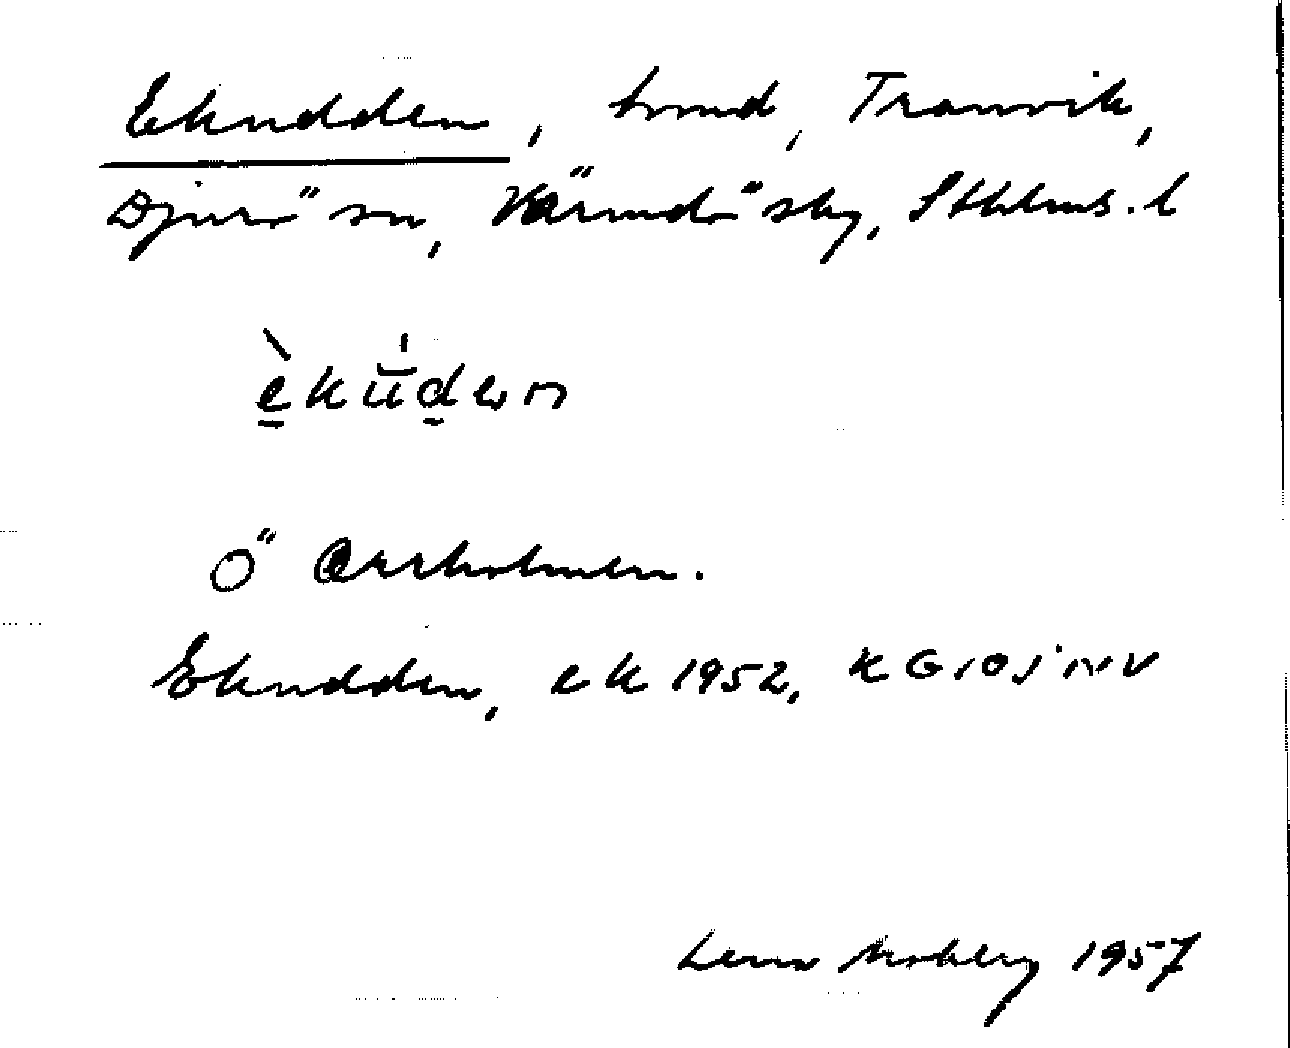 Ekudden, hmd, Tranvik,
Djurö sn, Värmdö sky, Sthlms. l
èkŭ́den
Ö Orrholmen.
Ekudden, ek 1952, KG 10J NV
Lena Moberg 1957